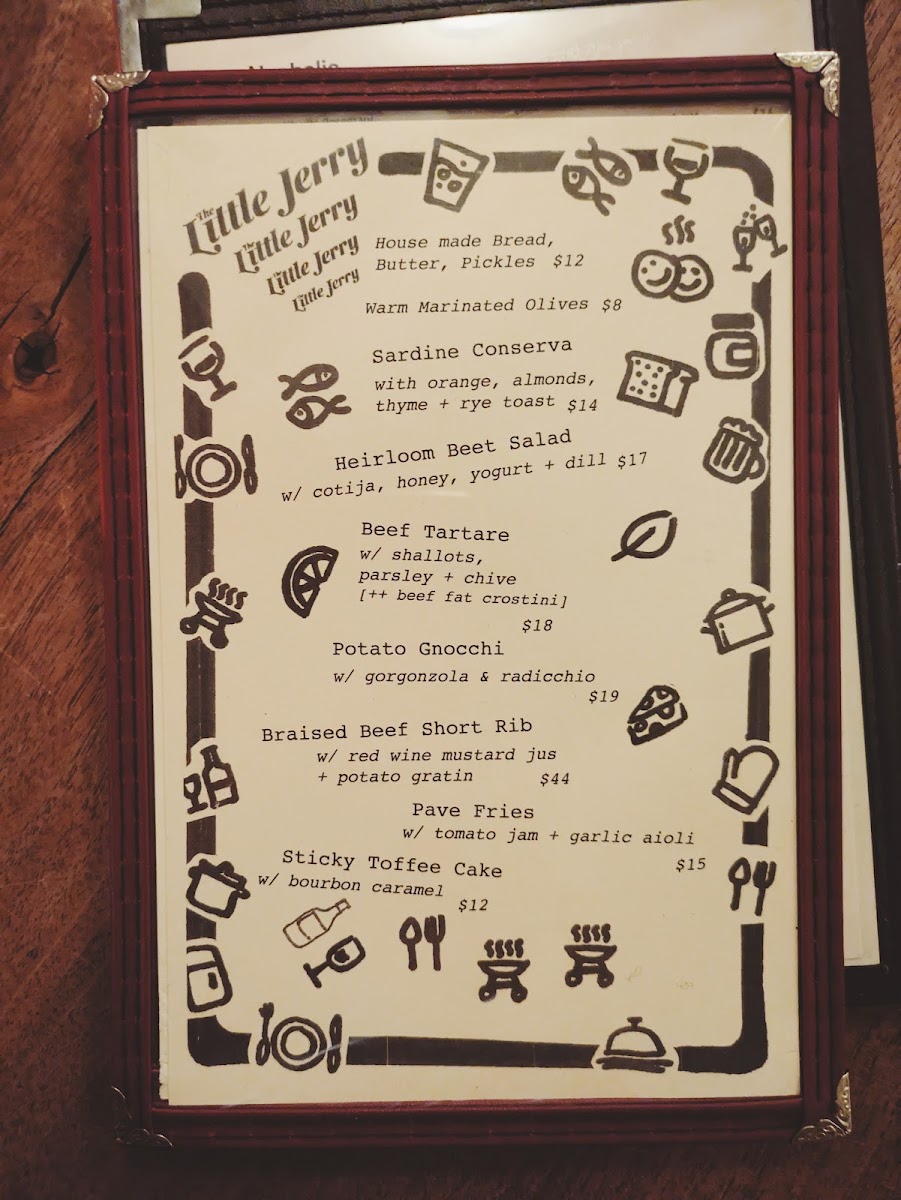 Alcoholic
The
Little Jerry
The
Little Jerry
The
Little Jerry
Little Jerry
House made Bread,
Butter, Pickles $12
Warm Marinated Olives $8
Sardine Conserva
with orange, almonds,
thyme + rye toast $14
Heirloom Beet Salad
w/ cotija, honey, yogurt + dill $17
Beef Tartare
w/ shallots,
parsley + chive
[++ beef fat crostini]
$18
Potato Gnocchi
w/ gorgonzola & radicchio
$19
Braised Beef Short Rib
w/ red wine mustard jus
+ potato gratin $44
Pave Fries
w/ tomato jam + garlic aioli
$15
Sticky Toffee Cake
w/ bourbon caramel
$12